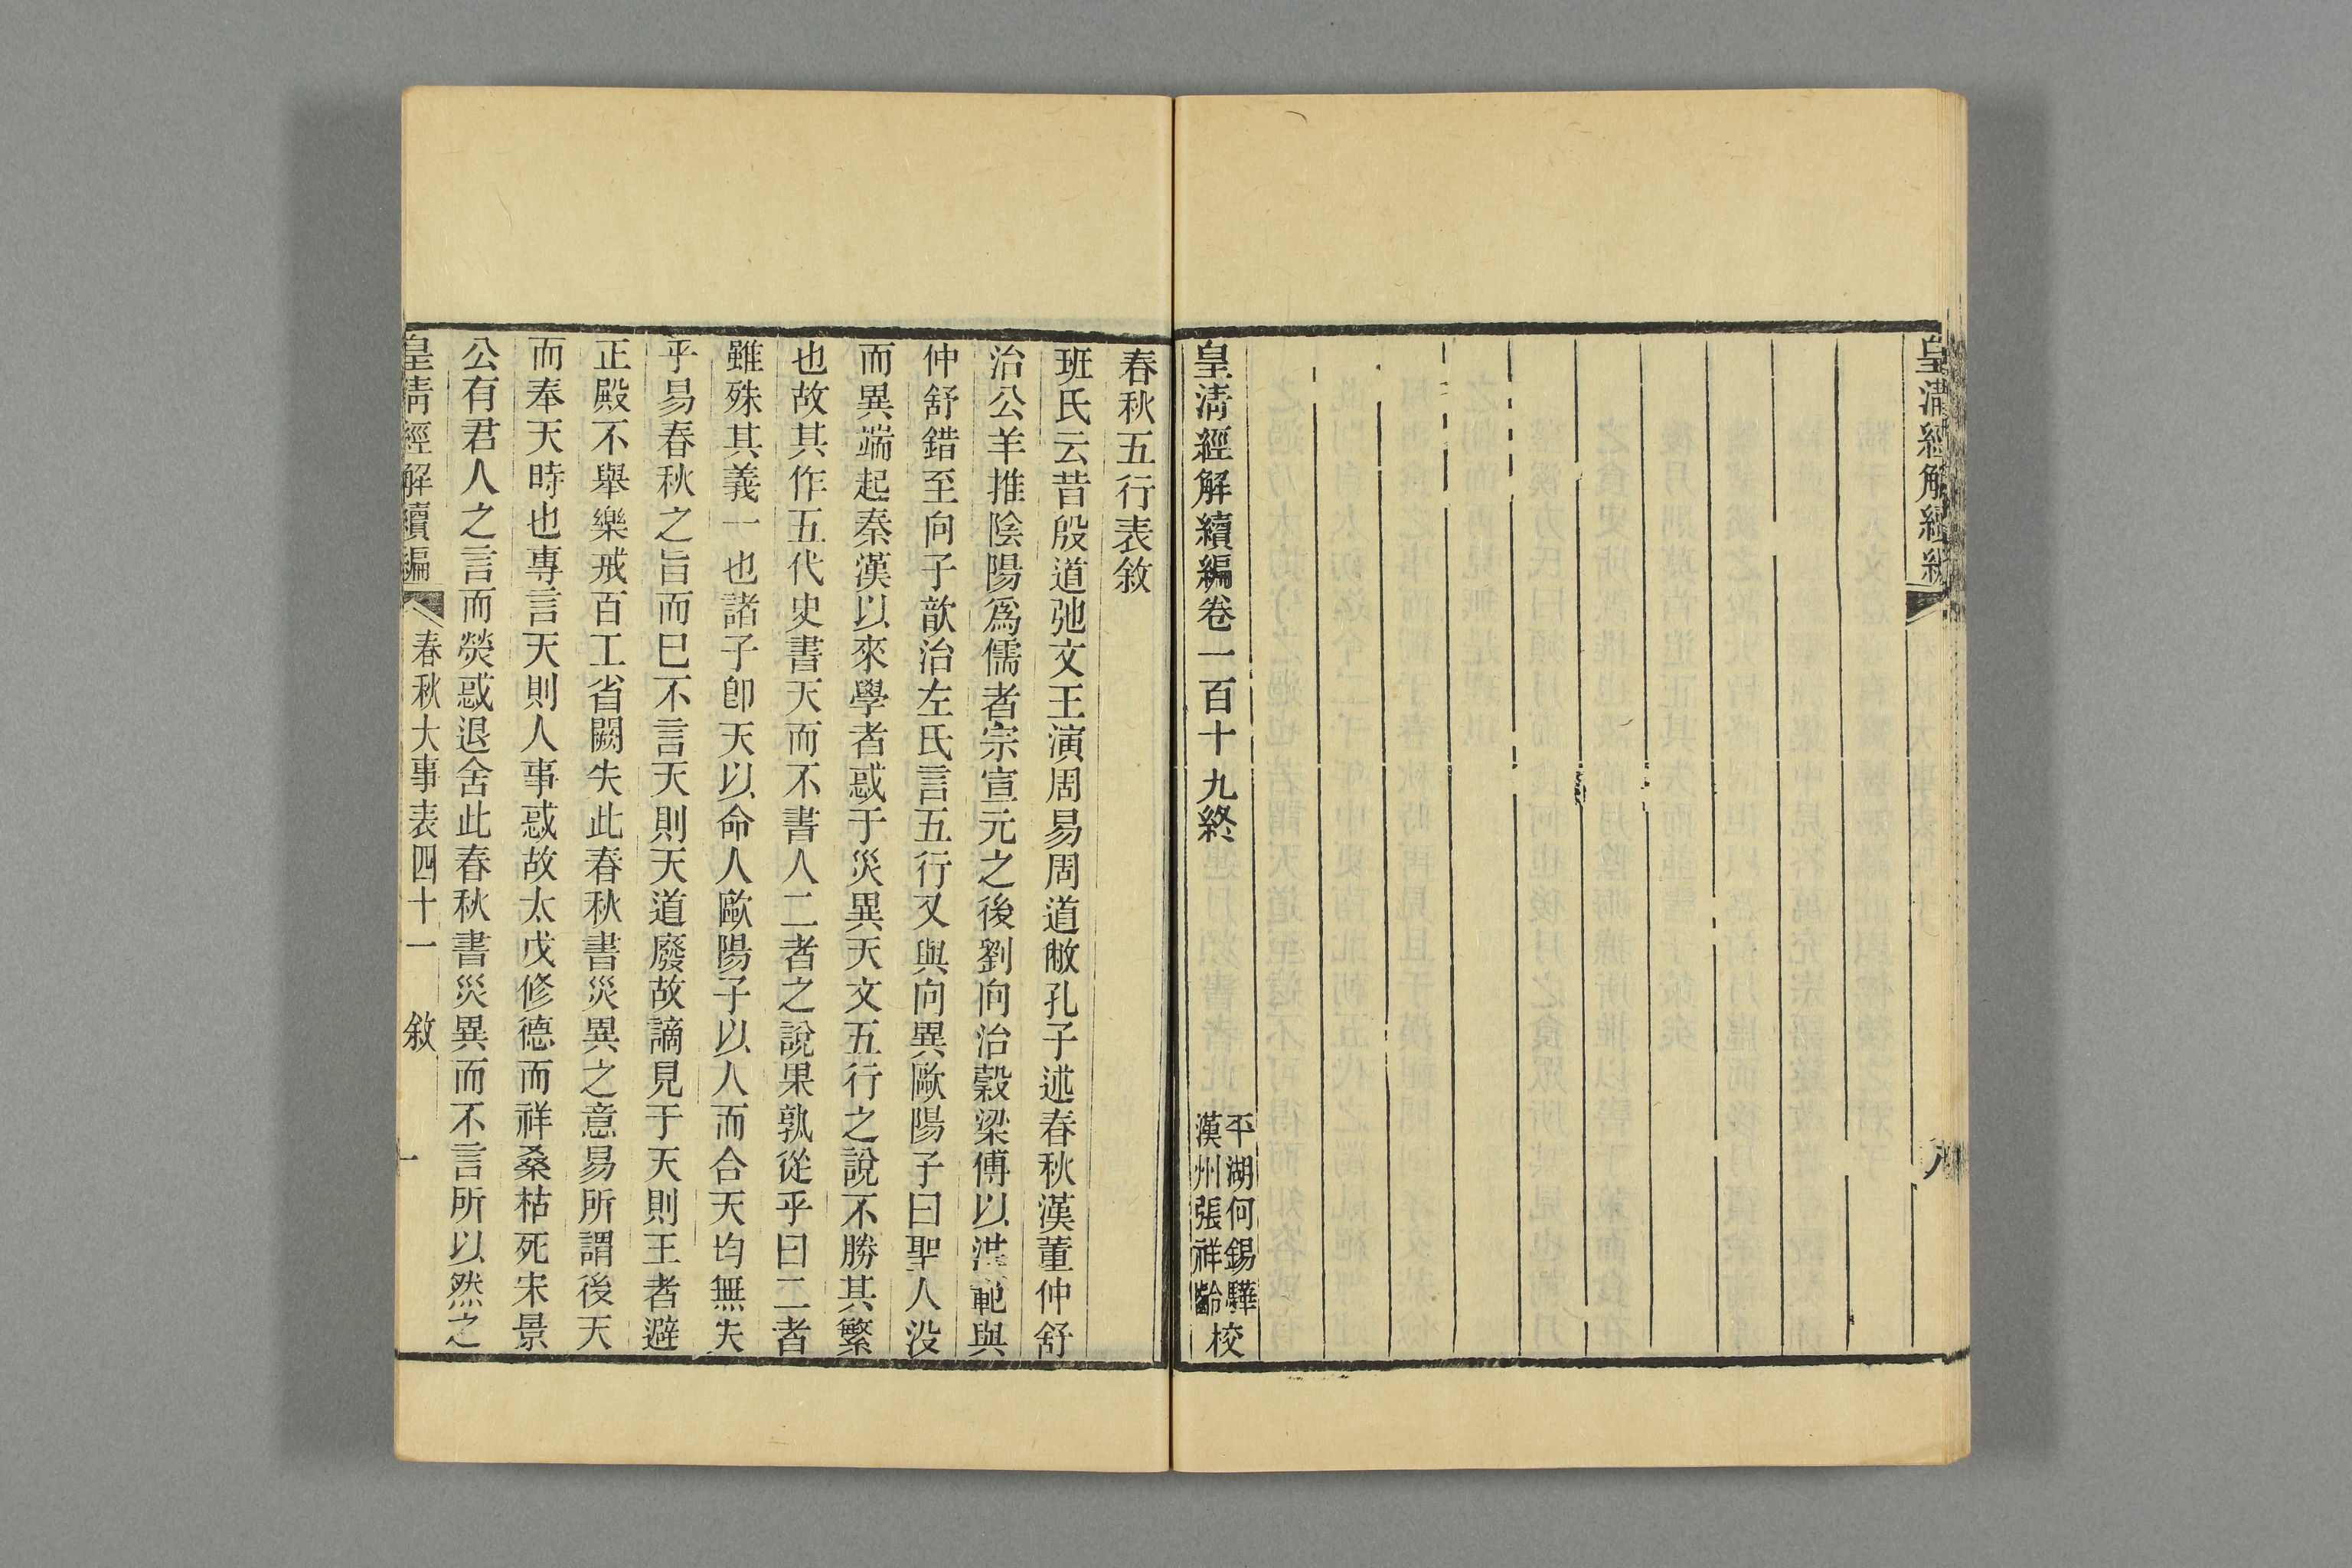 皇清經解續編
八
皇清經解續編卷一百十九終
平湖何錫驊
漢州張祥齡
校
春秋五行表敘
班氏云昔殷道弛文王演周易周道敝孔子述春秋漢董仲舒
治公羊推陰陽爲儒者宗宣元之後劉向治穀梁傅以洪範與
仲舒錯至向子歆治左氏言五行又與向異歐陽子曰聖人没
而異端起秦漢以來學者惑于災異天文五行之說不勝其繁
也故其作五代史書天而不書人二者之說果孰從乎曰二者
雖殊其義一也諸子卽天以命人歐陽子以人而合天均無失
乎易春秋之旨而已不言天則天道廢故謫見于天則王者避
正殿不舉樂戒百工省闕失此春秋書災異之意易所謂後天
而奉天時也專言天則人事惑故太戊修德而祥桑枯死宋景
公有君人之言而熒惑退舍此春秋書災異而不言所以然之
皇清經解續編
春秋大事表四十一
敘
一